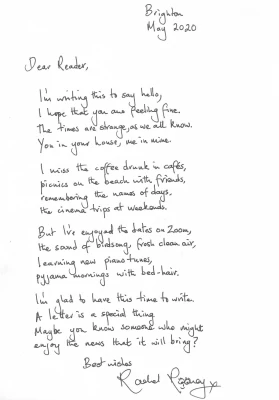 Brighton
May 2020
Dear Reader,
I'm writing this to say hello,
I hope that you are feeling fine.
The times are strange, as we all know.
You in your house, me in mine.
I miss the coffee drunk in cafés,
picnics on the beach with friends,
remembering the names of days,
the cinema trips at weekends.
But I've enjoyed the dates on Zoom,
the sound of birdsong, fresh clean air,
learning new piano tunes,
pyjama mornings with bed-hair.
I'm glad to have this time to write.
A letter is a special thing.
Maybe you know someone who might
enjoy the news that it will bring?
Best wishes
Rachel Rooney x